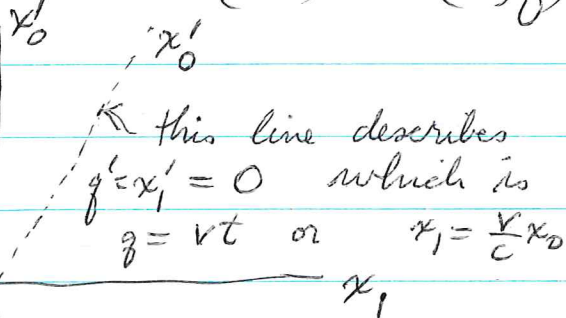 x₀'
x₀'
this line describes
q' = x₁' = 0 which is
q = vt or x₁ = v/c x₀
x₁